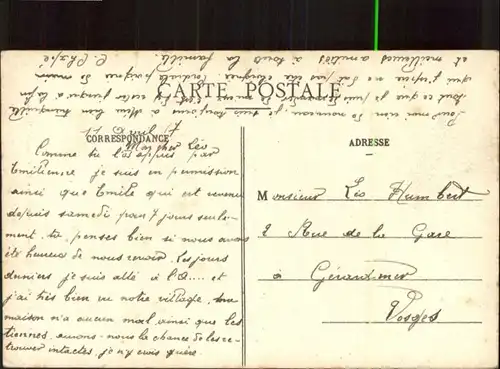 CARTE POSTALE
17 Avril 17
CORRESPONDANCE
Mon cher Léo
Comme tu l'as appris par
Emilienne je suis en permission
ainsi que Emile qui est revenu
depuis samedi pour 7 jours seule-
ment, tu penses bien si nous avons
été heureux de nous revoir. Les jours
derniers je suis allé à l'A.... et
j'ai très bien vu notre village, ma
maison n'a aucun mal, ainsi que les
tiennes, aurons-nous la chance de les re-
trouver intactes, je n'y crois guère.
Pour moi rien de nouveau, je suis toujours à bien tranquille
tout ce que je puis demander c'est d'y rester jusqu'à la fin
qui j'espère ne sait pas être éloignée. Cordiale poignée de main
et meilleures amitiés à toute la famille.
ADRESSE
Monsieur Léo Humbert
2 Rue de la Gare
à Gérardmer
Vosges